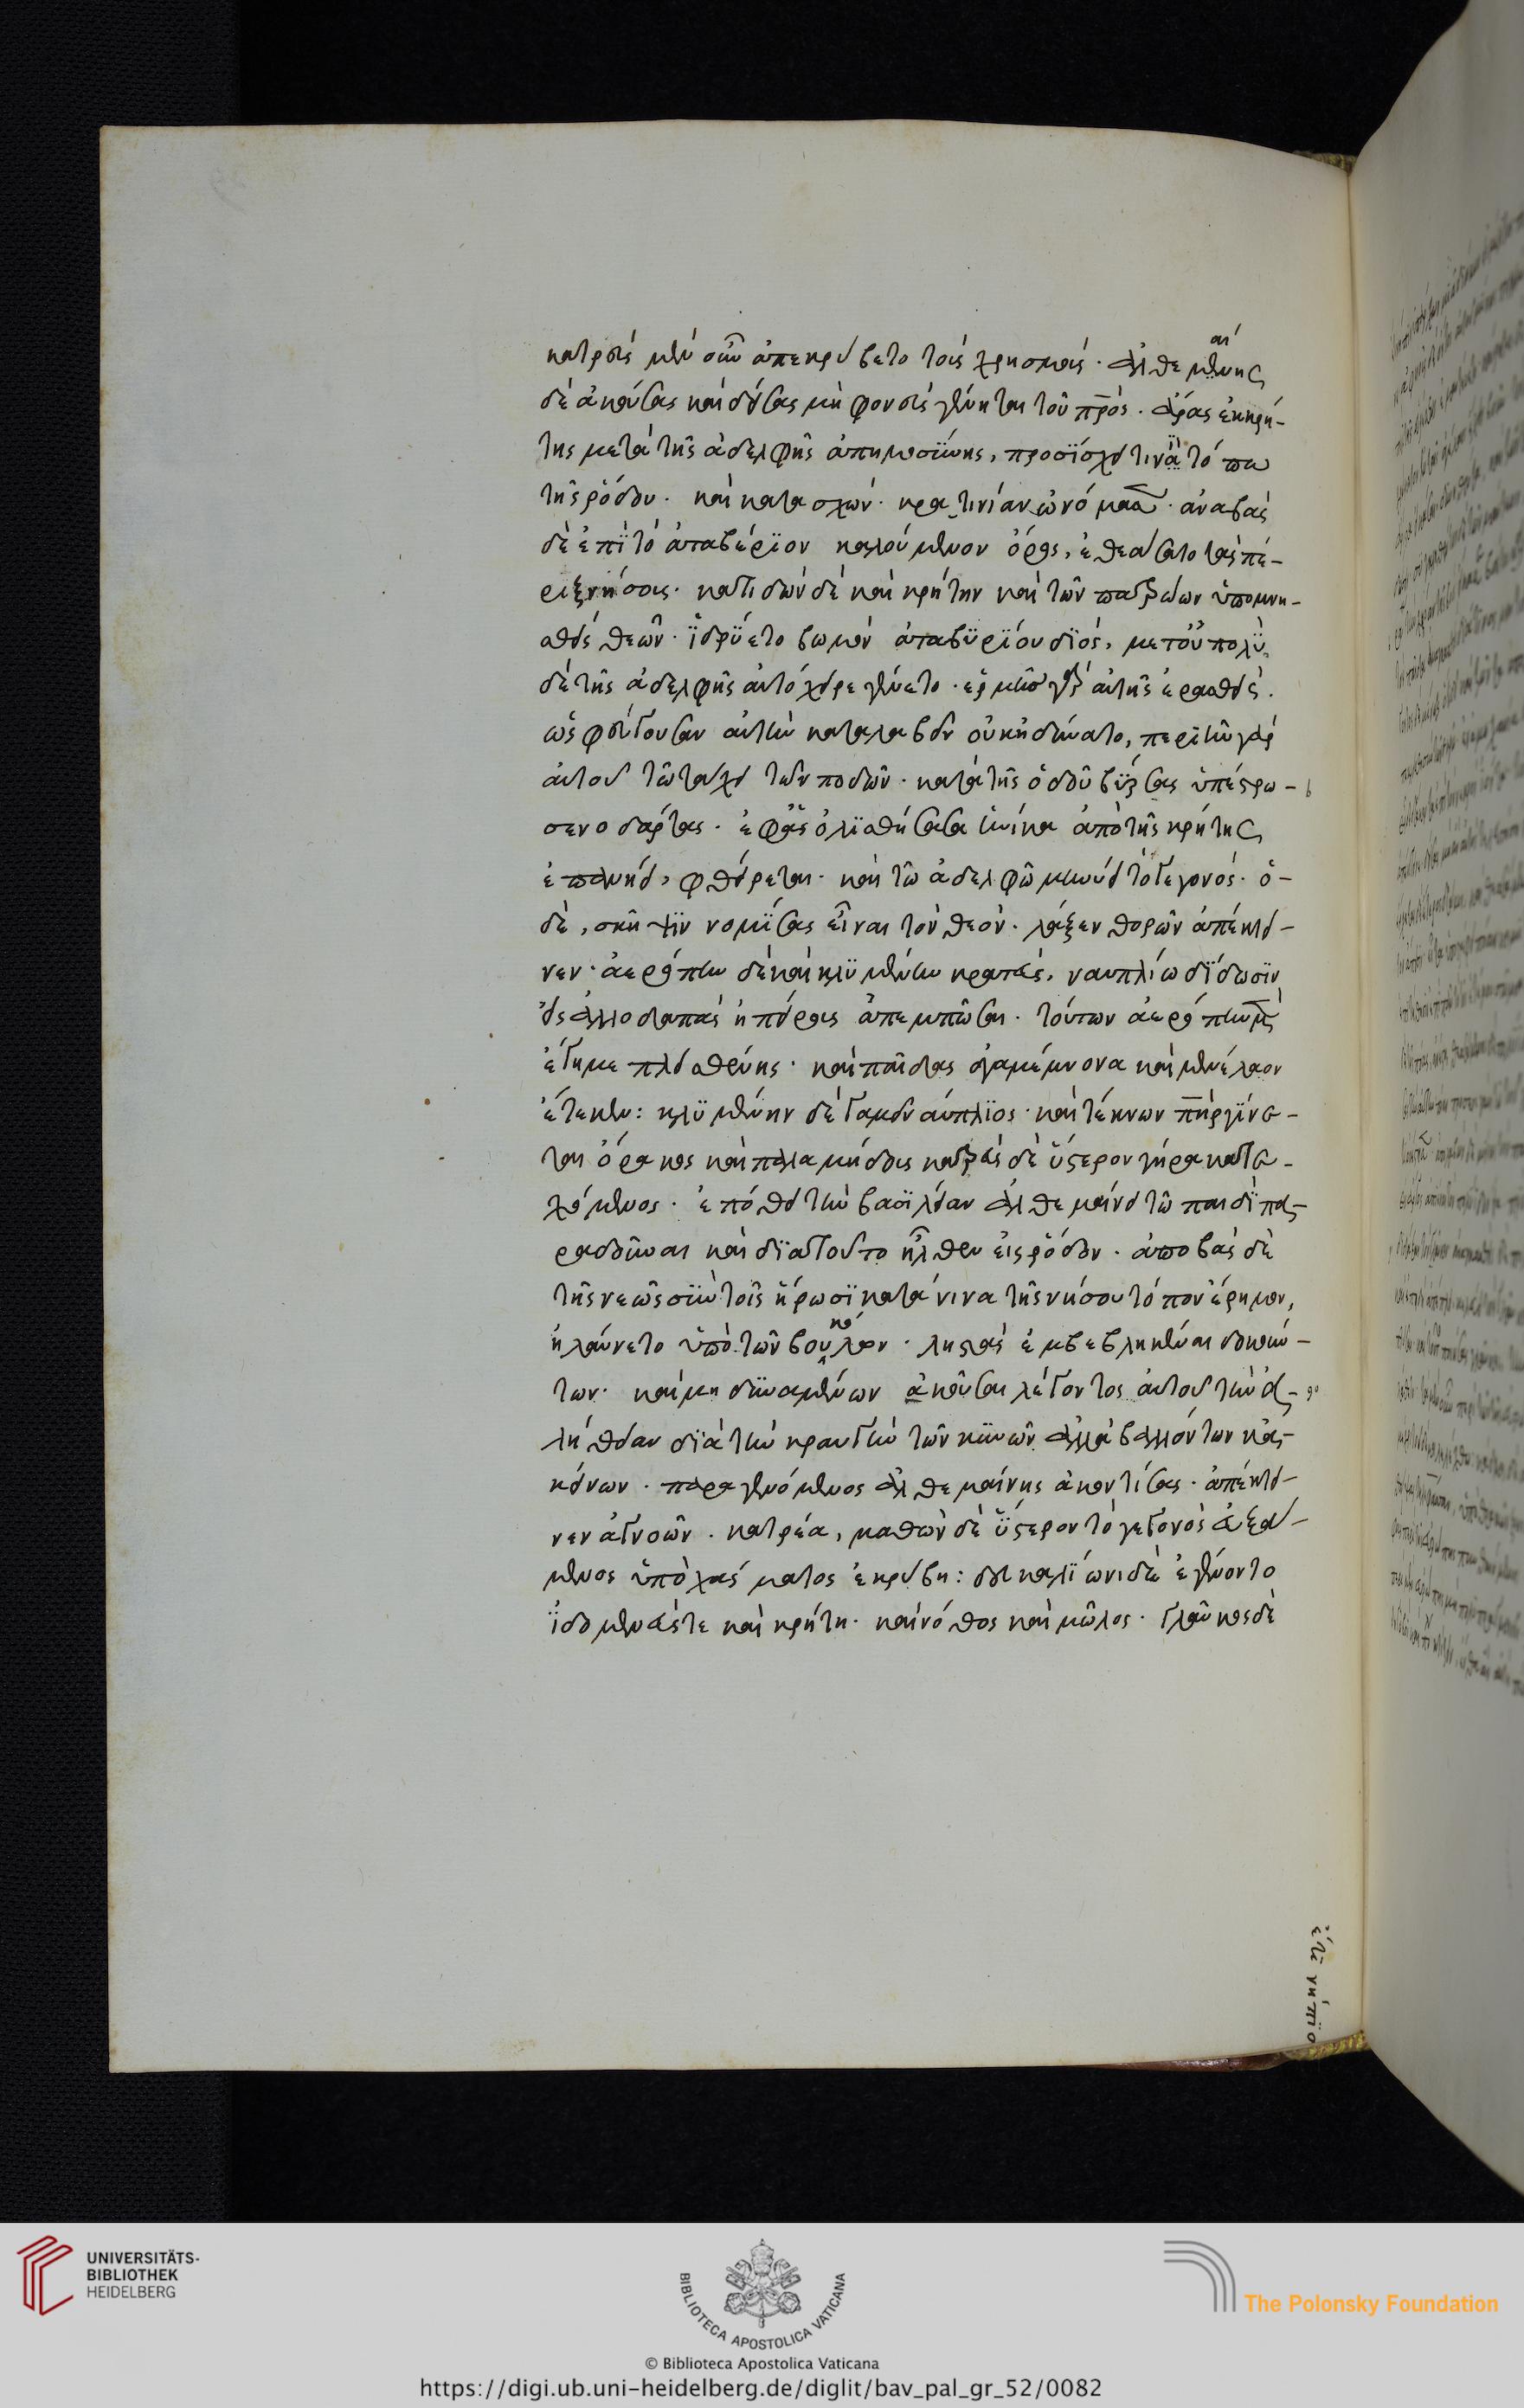 κατρεὺς μὲν οὖν ἀπεκρύβετο τοὺς χρησμοὺς. ἀλθεμένης
αί
δὲ ἀκούσας καὶ δείσας μὴ φονεὺς γένηται τοῦ πρς. ἄρας ἐκ κρή-
της μετὰ τῆς ἀδελφῆς ἀπημοσύνης, προσΐσχει τινῒ τό πω
τῆς ῥόδου. καὶ κατασχὼν. κρατινίαν ὠνόμασ. ἀναβὰς
δὲ ἐπῒ τὸ ἀταβύρϊον καλούμενον ὄρος, ἐθεάσατο τὰς πέ-
ριξ νήσους. κατιδὼν δὲ καὶ κρήτην καὶ τῶν πατρώων ὑπομνη-
σθεὶς θεῶν. ἱ̈δρΰετο βωμὸν ἀταβϋρΐου διός. μετ' οὐ πολῢ
δὲ τῆς ἀδελφῆς αὐτόχειρ ἐγένετο. ἑρμῆσ γὰρ αὐτῆς ἐρασθεὶς.
ὡς φεύγουσαν αὐτὴν καταλαβεῖν οὐκ ἠδύνατο, περιῆν γὰρ
αὐτοῦ τῶ τάχει τῶν ποδῶν. κατὰ τῆς ὁδοῦ βύρσας ὑπέστρω-
σεν ο δαρτας. ἐφ' ἃς ὀλϊσθήσασα ἡνίκα ἀπὸ τῆς κρήτης
ἐπανήει, φθείρεται. καὶ τῶ ἀδελφῶ μηνύει τὸ γεγονός. ὁ-
δὲ, σκῆψϊν νομΐσας εἶναι τὸν θεὸν. λὰξ ἐνθορῶν ἀπέκτει-
νεν. ἀερόπην δὲ καὶ κλϋμένην κρατεὺς, ναυπλίω δΐδωσϊν
εἰς ἀλλοδαπὰς ἠπείρους ἀπεμπῶσαι. τούτων ἀερόπην μ
ἔγημε πλεισθένης. καὶ παῖδας ἀγαμέμνονα καὶ μενέλαον
ἔτεκεν: κλϋμένην δὲ γαμεῖ ναύπλϊος. καὶ τέκνων πηρ γίνε-
ται ὄρακος καὶ παλαμήδους κατρεὺς δὲ ὕστερον γήρα κατε-
χόμενος. ἐπόθει τὴν βασϊλείαν ἀλθεμαίνει τῶ παιδῒ πα-
ραδοῦναι καὶ δϊατοῦτο ἦλθεν εἰς ῥόδον. ἀποβὰς δὲ
τῆς νεὼς σὺν τοῖς ἥρωσϊ κατά νινα τῆς νήσου τόπον ἔρημον,
ἠλαύνετο ὑπὸ τῶν βουλων. ληστὰς ἐμβεβληκέναι δοκούν-
κό
των. καὶ μὴ δϋναμένων ἀκοῦσαι λέγοντος αὐτοῦ τὴν ἀ-
λήθειαν δϊὰ τὴν κραυγὴν τῶν κϋνῶν ἀλλὰ βαλλόντων κἀ-
κείνων. παραγενόμενος ἀλθεμαίνης ἀκοντίσας. ἀπέκτει-
νεν ἀγνοῶν. κατρέα, μαθὼν δὲ ὕστερον τὸ γεγονὸς εὐξά-
μενος ὑπὸ χάσματος ἐκρύβη: δευκαλΐωνι δὲ ἐγένοντο
ϊδομενεύς τε καὶ κρήτη. καὶ νόθος καὶ μῶλος. γλαῦκος δὲ
ἔτι νήπϊο
UNIVERSITÄTS-
BIBLIOTHEK
HEIDELBERG
BIBLIOTECA APOSTOLICA VATICANA
The Polonsky Foundation
© Biblioteca Apostolica Vaticana
https://digi.ub.uni-heidelberg.de/diglit/bav_pal_gr_52/0082